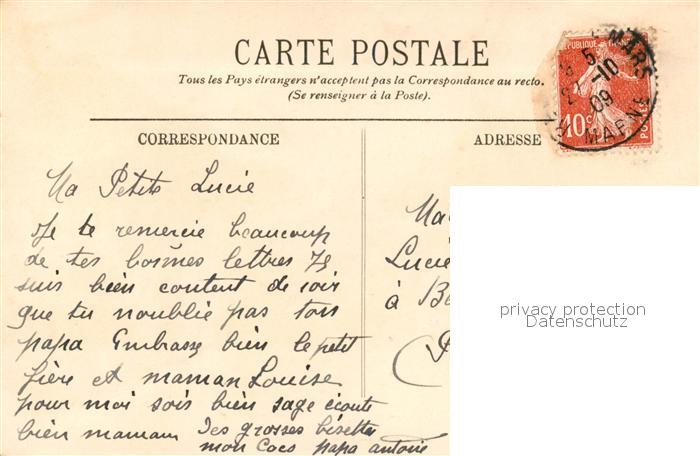 CARTE POSTALE
Tous les Pays étrangers n'acceptent pas la Correspondance au recto.
(Se renseigner à la Poste).
CORRESPONDANCE
ADRESSE
RÉPUBLIQUE FRANÇAISE
10c POSTES
MARS
5
2-10
09
MARNE
Ma Petite Lucie
Je te remercie beaucoup
de tes bonnes lettres Je
suis bien content de voir
que tu n'oublie pas ton
papa Embrasse bien le petit
frère et maman Louise
pour moi sois bien sage écoute
bien maman des grosses bisettes
mon Coco papa antoine
Ma
Lucie
à Be
privacy protection
Datenschutz